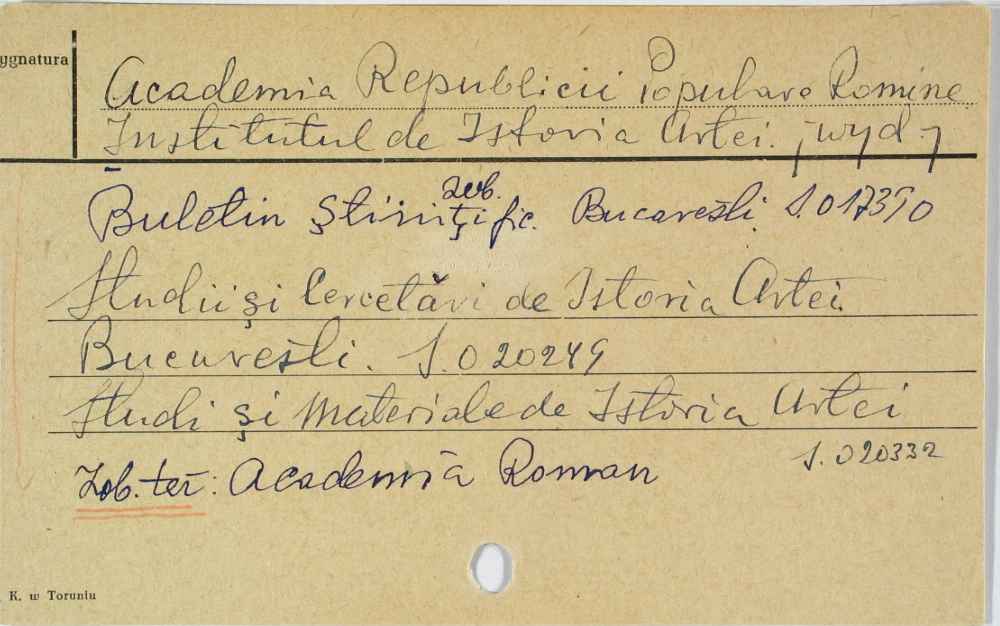 ygnatura
Academia Republicii Populare Romine
Institutul de Istoria Artei. /wyd/
zob.
Buletin Ştiinţific. Bucaresti. S.017390
Studii şi Cercetări de Istoria Artei.
Bucuresti. S.020249
Studi şi Materiale de Istoria Artei
S.020332
Zob. też: Academia Roman
K. w Toruniu